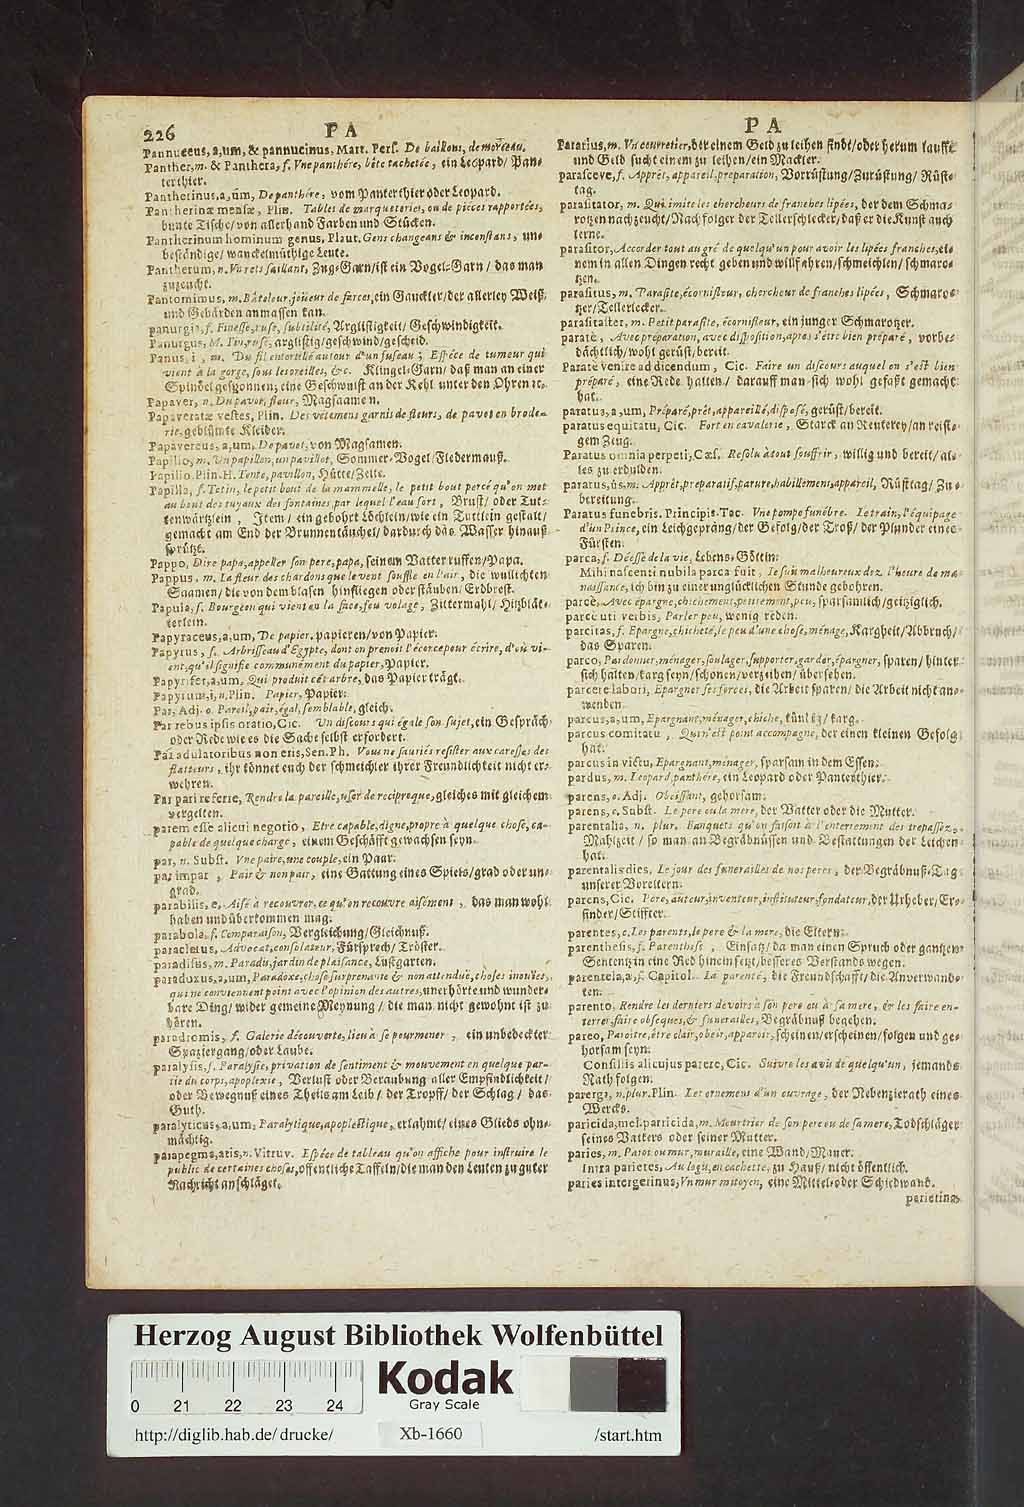 226
PA
Pannuceus, a, um, & pannucinus, Mart. Pers. De haillons, de morceau.
Panther, m. & Panthera, f. Vne panthére, bête tachetée, ein Leopard/ Pan-
terthier.
Pantherinus, a, um, De panthére, vom Panterthier oder Leopard.
Pantherinæ mensæ, Plin. Tables de marqueteries, ou de pieces rapportées,
bunte Tische/ von allerhand Farben und Stücken.
Pantherinum hominum genus, Plaut. Gens changeans & inconstans, un-
beständige/ wanckelmüthige Leute.
Pantherum, n. Vn rets saillant, Zug-Garn/ ist ein Vogel-Garn/ das man
zuzeucht.
Pantomimus, m. Bâteleur, joüeur de farces, ein Gauckler/ der allerley Weiß
und Gebärden anmassen kan.
panurgia, f. Finesse, ruse, subtilité, Arglistigkeit/ Geschwindigkeit.
Panurgus, M. Fin, rusé, arglistig/ geschwind/ gescheid.
Panus, i, m. Du fil entortillé autour d'un fuseau; Espéce de tumeur qui
vient à la gorge, sous les oreilles, &c. Klingel-Garn/ daß man an einer
Spindel gesponnen; eine Geschwulst an der Kehl unter den Ohren ꝛc.
Papaver, n. Du pavot, fleur, Magsaamen.
Papaveratæ vestes, Plin. Des vétemens garnis de fleurs, de pavot en brode-
rie. geblümte Kleider.
Papavereus, a, um, De pavot, von Magsamen.
Papilio, m. Un papillon, un pavillot, Sommer-Vogel/ Fledermauß.
Papilio, Plin. H. Tente, pavillon, Hütte/ Zelte.
Papilla, f. Tetin, le petit bout de la mammelle, le petit bout percé qu'on met
au bout des tuyaux des fontaines, par lequel l'eau sort, Brust/ oder Tut-
tenwärtzlein, Item/ ein gebohrt Löchlein/ wie ein Tuttlein gestalt/
gemacht am End der Brunnentäuchel/ dardurch das Wasser hinauß
sprützt.
Pappo, Dire papa, appeller son pere, papa, seinem Vatter ruffen/ Papa.
Pappus, m. La fleur des chardons que le vent souffle en l'air, die wullichten
Saamen/ die von dem blasen hinfliegen oder stäuben/ Erdbrest.
Papula, f. Bourgeon qui vient en la face, feu volage, Zittermahl/ Hitzblät-
terlein.
Papyraceus, a, um, De papier, papieren/ von Papier.
Papyrus, f. Arbrisseau d'Egypte, dont on prenoit l'écorce pour écrire, d'où vi-
ent, qu'il signifie communément du papier, Papier.
Papyrifer, a, um, Qui produit cét arbre, das Papier trägt.
Papyrum, i, n. Plin. Papier, Papier.
Par, Adj. o. Pareil, pair, égal, semblable, gleich.
Par rebus ipsis oratio, Cic. Un discours qui égale son sujet, ein Gespräch
oder Rede wie es die Sache selbst erfordert.
Par adulatoribus non eris, Sen. Ph. Vous ne sauriés resister aux caresses des
flatteurs, ihr könnet euch der schmeichler ihrer Freundlichkeit nicht er-
wehren.
Par pari referre, Rendre la pareille, user de reciproque, gleiches mit gleichem
vergelten.
parem esse alicui negotio, Etre capable, digne, propre à quelque chose, ca-
pable de quelque charge, einem Geschäfft gewachsen seyn.
par, n. Subst. Vne paire, une couple, ein Paar.
par impar, Pair & non pair, eine Gattung eines Spiels/ grad oder un-
grad.
parabilis, e, Aisé à recouvrer, ce qu'on recouvre aisément, das man wohl
haben und überkommen mag.
parabola, f. Comparaison, Vergleichung/ Gleichnuß.
paracletus, Advocat, consolateur, Fürsprech/ Tröster.
paradisus, m. Paradis, jardin de plaisance, Lustgarten.
paradoxus, a, um, Paradoxe, chose surprenante & non attenduë, choses inouïes,
qui ne conviennent point avec l'opinion des autres, unerhörte und wunder-
bare Ding/ wider gemeine Meynung/ die man nicht gewohnt ist zu
hören.
paradromis, f. Galerie découverte, lieu à se pourmener, ein unbedeckter
Spaziergang/ oder Laube.
paralysis, f. Paralysie, privation de sentiment & mouvement en quelque par-
tie du corps, apoplexie, Verlust oder Beraubung aller Empfindlichkeit/
oder Bewegnuß eines Theils am Leib/ der Tropff/ der Schlag/ das
Guth.
paralyticus, a, um, Paralytique, apoplectique, erlahmt/ eines Glieds ohn-
mächtig.
parapegma, atis, n. Vitruv. Espéce de tableau qu'on affiche pour instruire le
public de certaines choses, offentliche Taffeln/ die man den Leuten zu guter
Nachricht anschläget.
PA
Pararius, m. Vn couretier, der einem Geld zu leihen findt/ oder herum laufft
und Geld sucht einem zu leihen/ ein Mackler.
parasceve, f. Apprêt, appareil, preparation, Vorrüstung/ Zurüstung/ Rüst-
tag.
parasitator, m. Qui imite les chercheurs de franches lipées, der dem Schma-
rotzen nachzeucht/ Nachfolger der Tellerschlecker/ daß er die Kunst auch
lerne.
parasitor, Accorder tout au gré de quelqu'un pour avoir les lipées franches, ei-
nem in allen Dingen recht geben und willfahren/ schmeichlen/ schmaro-
tzen.
parasitus, m. Parasite, écornifleur, chercheur de franches lipées, Schmaro-
tzer/ Tellerlecker.
parasitaster, m. Petit parasite, écornifleur, ein junger Schmarotzer.
parate, Avec preparation, avec disposition, apres s'être bien préparé, vorbe-
dächtlich/ wohl gerüst/ bereit.
Parate venire ad dicendum, Cic. Faire un discours auquel on s'est bien
préparé, eine Rede halten/ darauff man sich wohl gefaßt gemacht
hat.
paratus, a, um, Préparé, prêt, appareillé, disposé, gerüst/ bereit.
paratus equitatu, Cic. Fort en cavalerie, Starck an Reuterey/ an reisi-
gem Zeug.
Paratus omnia perpeti, Cæs. Resolu à tout souffrir, willig und bereit/ al-
les zu erdulden.
paratus, ûs, m. Apprêt, preparatif, parure, habillement, appareil, Rüsttag/ Zu-
bereitung.
Paratus funebris. Principis. Tac. Vne pompe funébre. Le train, l'équipage
d'un Prince, ein Leichgepräng/ der Gefolg/ der Troß/ der Plunder eines
Fürsten.
parca, f. Déesse de la vie, Lebens-Göttin.
Mihi nascenti nubila parca fuit, Je suis malheureux dez l'heure de ma
naissance, ich bin zu einer unglücklichen Stunde gebohren.
parcè, Avec épargne, chichement, petitement, peu, sparsamlich/ geitziglich.
parce uti verbis, Parler peu, wenig reden.
parcitas, f. Epargne, chicheté, le peu d'une chose, ménage, Kargheit/ Abbruch/
das Sparen.
parco, Pardonner, ménager, soulager, supporter, garder, épargner, sparen/ hinter
sich halten/ karg seyn/ schonen/ verzeihen/ übersehen.
parcere labori, Epargner ses forces, die Arbeit sparen/ die Arbeit nicht an-
wenden.
parcus, a, um, Epargnant, ménager, chiche, karg.
parcus comitatu, Qui n'est point accompagné, der einen kleinen Gefolg
hat.
parcus in victu, Epargnant, ménager, sparsam in dem Essen.
pardus, m. Leopard, panthére, ein Leopard oder Panterthier.
parens, o. Adj. Obeissant, gehorsam.
parens, c. Subst. Le pere ou la mere, der Vatter oder die Mutter.
parentalia, n. plur. Banquets qu'on faisoit à l'enterrement des trepassez,
Mahlzeit/ so man an Begräbnüssen und Bestattungen der Leichen
hat.
parentalis dies, Le jour des funerailles de nos peres, der Begräbnuß-Tag
unserer Voreltern.
parens, Cic. Pere, auteur, inventeur, instituteur, fondateur, der Urheber/ Er-
finder/ Stiffter.
parentes, c. Les parents, le pere & la mere, die Eltern.
parenthesis, f. Parenthese, Einsatz/ da man einen Spruch oder gantzen
Sententz in eine Red hinein setzt/ besseres Verstands wegen.
parentela, æ, f. Capitol. La parenté, die Freundschafft/ die Anverwand-
ten.
parento, Rendre les derniers devoirs à son pere ou à sa mere, & les faire en-
terrer, faire obseques, & funerailles, Begräbnuß begehen.
pareo, Paroitre, être clair, obeir, apparoir, scheinen/ erscheinen/ folgen und ge-
horsam seyn.
Consiliis alicujus parere, Cic. Suivre les avis de quelqu'un, jemands
Rath folgen.
parerga, n. plur. Plin. Les ornement d'un ouvrage, der Nebenzierath eines
Wercks.
paricida, mel. parricida, m. Meurtrier de son pere ou de sa mere, Todschläger
seines Vatters oder seiner Mutter.
paries, m. Paroi ou mur, muraille, eine Wand/ Maur.
Intra parietes, Au logis, en cachette, zu Hauß/ nicht öffentlich.
paries intergerinus, Vn mur mitoyen, eine Mittel- oder Schiedwand.
parietina
Herzog August Bibliothek Wolfenbüttel
Kodak
Gray Scale
0 21 22 23 24
http://diglib.hab.de/drucke/ Xb-1660 /start.htm